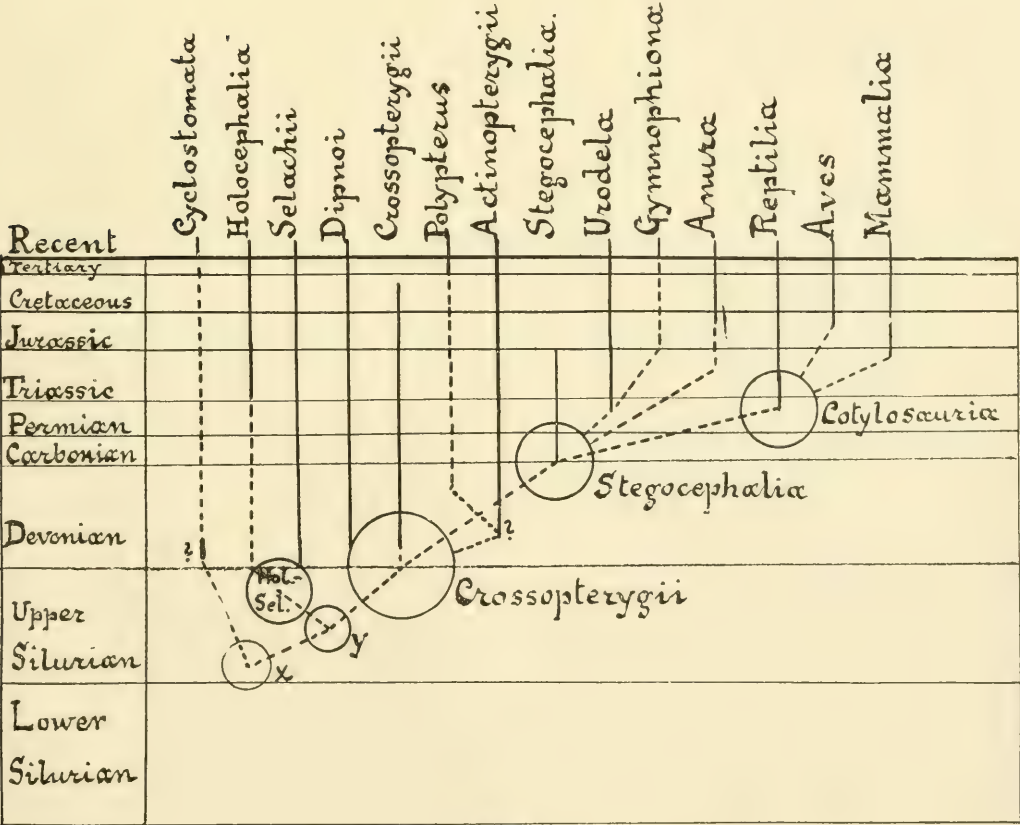 Cyclostomata
Holocephalia
Selachii
Dipnoi
Crossopterygii
Polypterus
Actinopterygii
Stegocephalia.
Urodela
Gymnophiona
Anura
Reptilia
Aves
Mammalia
Recent
Tertiary
Cretaceous
Jurassic
Triassic
Permian
Carbonian
Devonian
Upper
Silurian
Lower
Silurian
Cotylosauria
Stegocephalia
?
?
Hol.-
Sel.
Crossopterygii
y
x